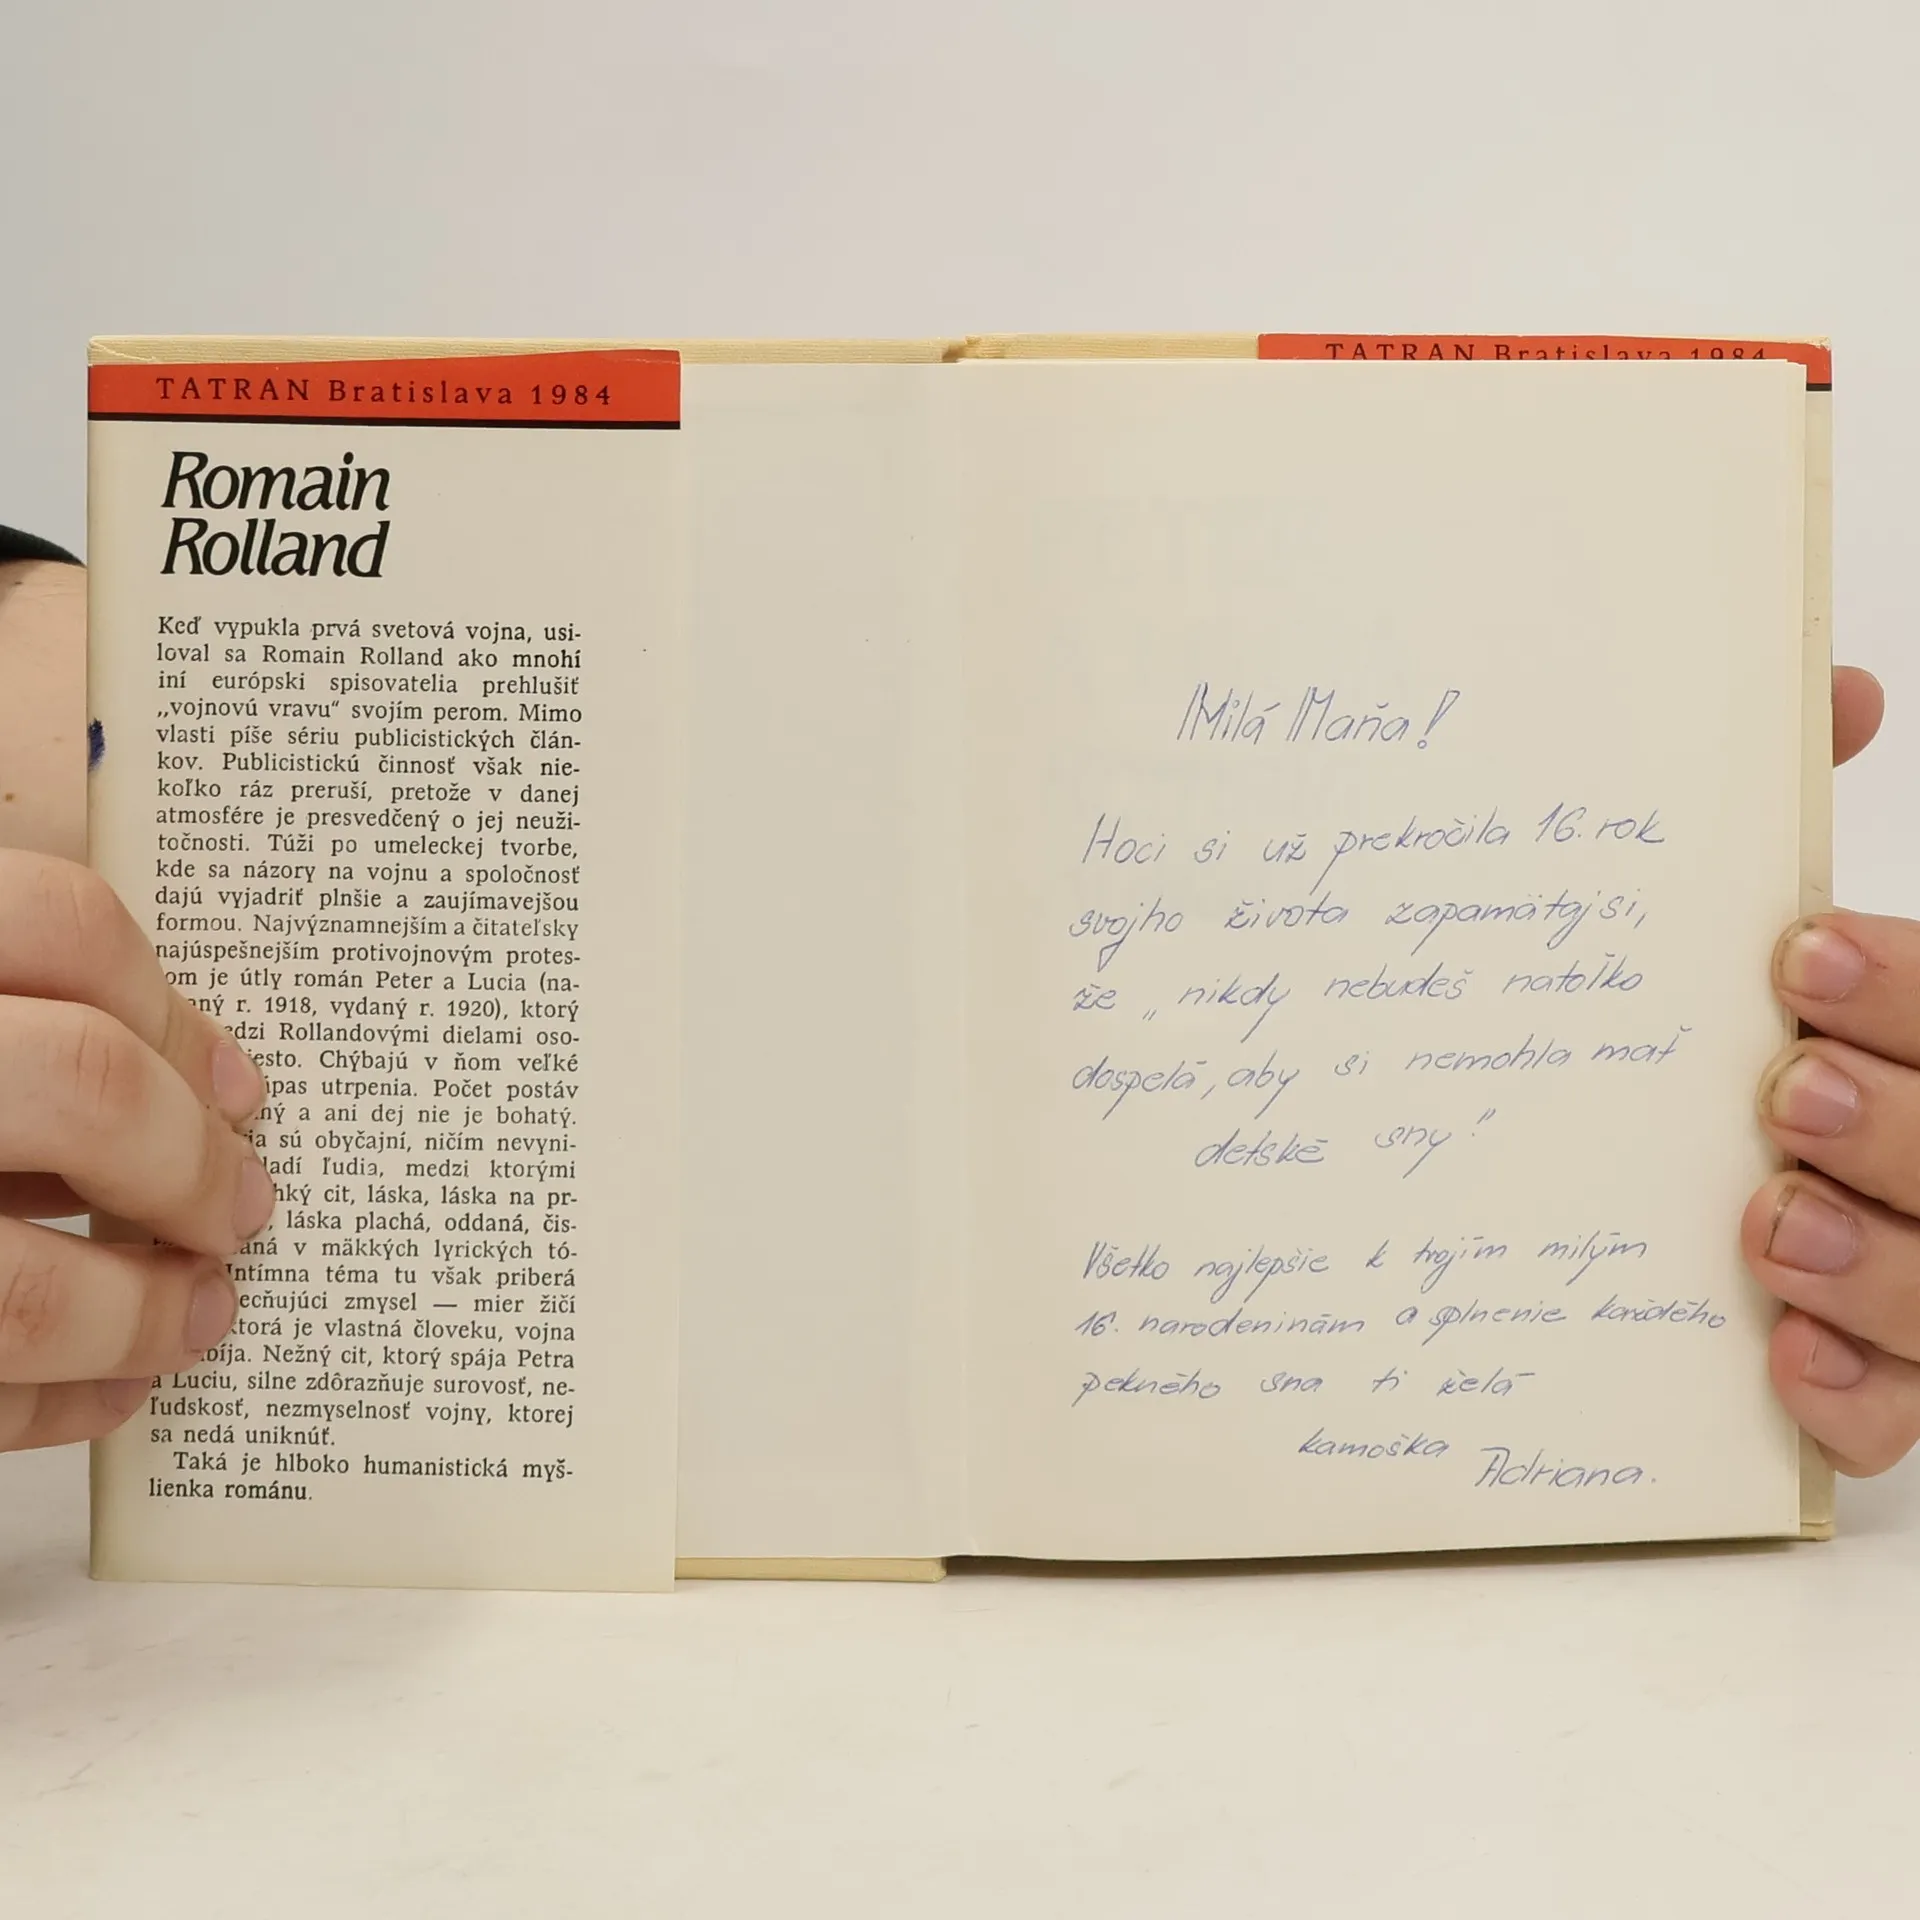 TATRAN Bratislava 1984
Romain
Rolland
Keď vypukla prvá svetová vojna, usi-
loval sa Romain Rolland ako mnohí
iní európski spisovatelia prehlušiť
„vojnovú vravu“ svojím perom. Mimo
vlasti píše sériu publicistických člán-
kov. Publicistickú činnosť však nie-
koľko ráz preruší, pretože v danej
atmosfére je presvedčený o jej neuži-
točnosti. Túži po umeleckej tvorbe,
kde sa názory na vojnu a spoločnosť
dajú vyjadriť plnšie a zaujímavejšou
formou. Najvýznamnejším a čitateľsky
najúspešnejším protivojnovým protes-
om je útly román Peter a Lucia (na-
aný r. 1918, vydaný r. 1920), ktorý
edzi Rollandovými dielami oso-
iesto. Chýbajú v ňom veľké
ápas utrpenia. Počet postáv
ný a ani dej nie je bohatý.
ia sú obyčajní, ničím nevyni-
ladí ľudia, medzi ktorými
hký cit, láska, láska na pr-
, láska plachá, oddaná, čis-
aná v mäkkých lyrických tó-
Intímna téma tu však priberá
ecňujúci zmysel — mier žičí
ktorá je vlastná človeku, vojna
bíja. Nežný cit, ktorý spája Petra
a Luciu, silne zdôrazňuje surovosť, ne-
ľudskosť, nezmyselnosť vojny, ktorej
sa nedá uniknúť.
Taká je hlboko humanistická myš-
lienka románu.
TATRAN Bratislava 1984
Milá Maňa!
Hoci si už prekročila 16. rok
svojho života zapamätaj si,
že „nikdy nebudeš natoľko
dospelá, aby si nemohla mať
detské sny!"
Všetko najlepšie k tvojim milým
16. narodeninám a splnenie každého
pekného sna ti želá
kamoška
Adriana.